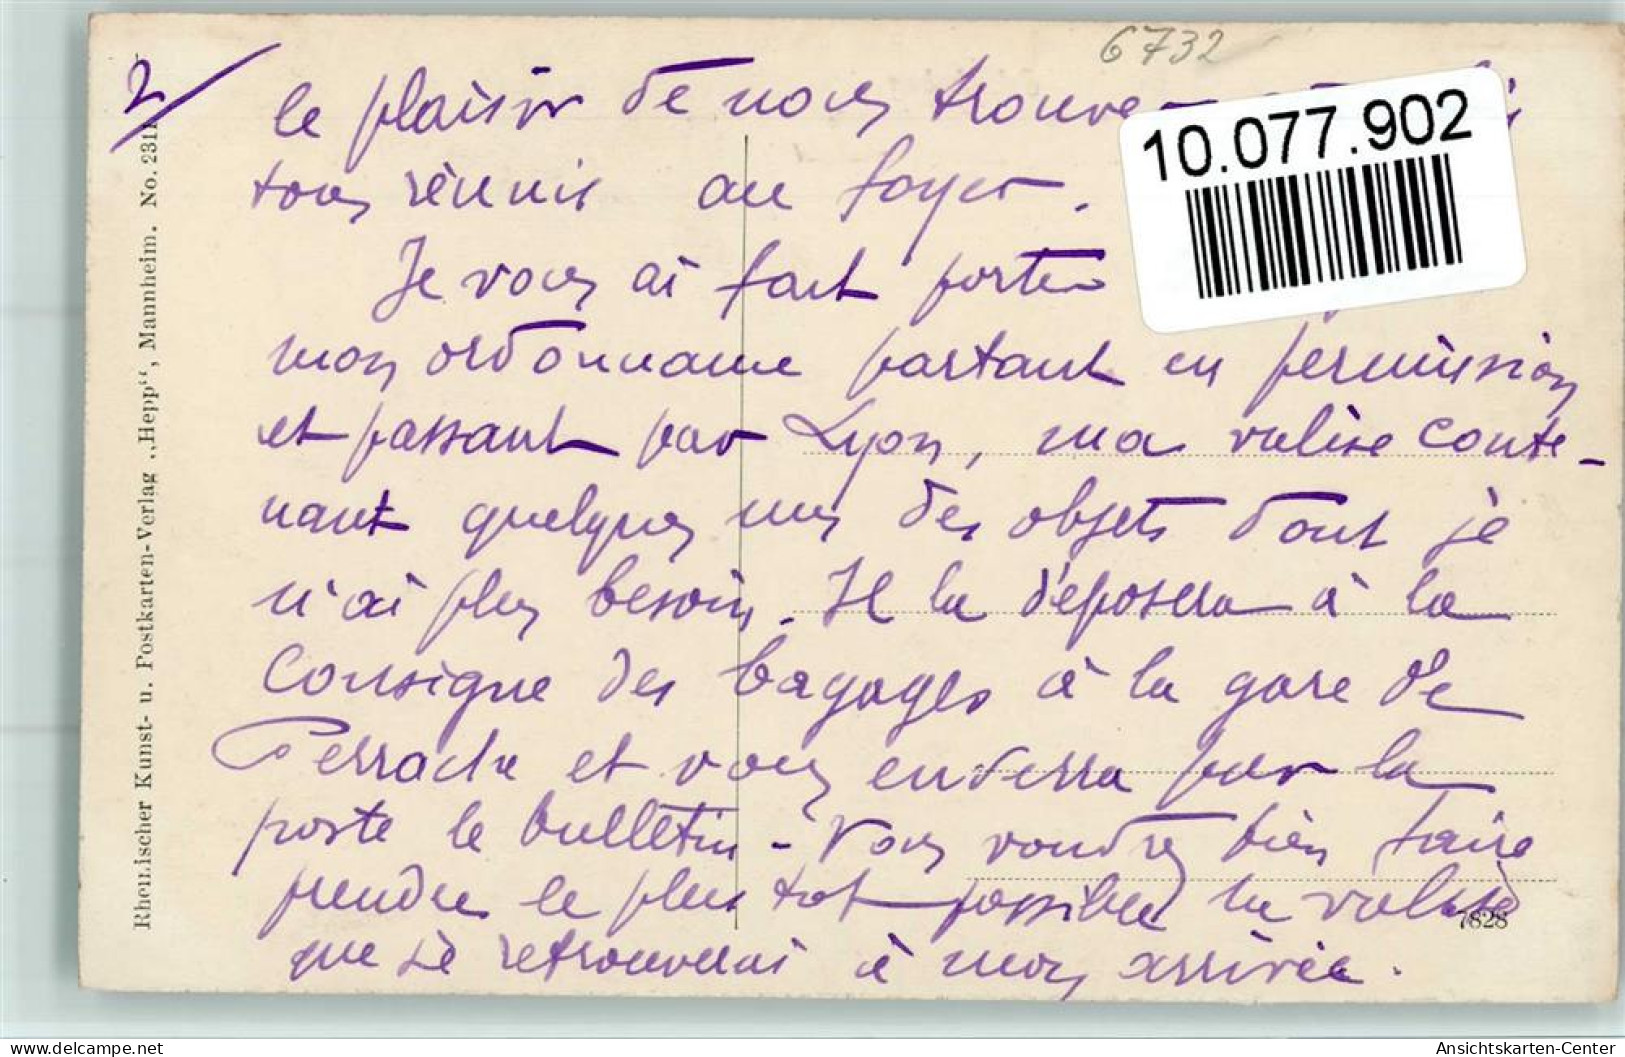 6732
2/
le plaisir de nous trouver
tous réunis au foyer.
Je vous ai fait porter
mon ordonnance partant en permission
et passant par Lyon, ma valise conte-
nant quelques uns des objets dont je
n'ai plus besoin. Il la déposera à la
Consigne des bagages à la gare de
Perrache et vous enverra par la
poste le bulletin - Vous voudrez bien faire
prendre le plus tot possible la valise
que je retrouverai à mon arrivée.
10.077.902
Rheinischer Kunst- u. Postkarten-Verlag „Hepp“, Mannheim. No. 231
7828
www.delcampe.net
Ansichtskarten-Center